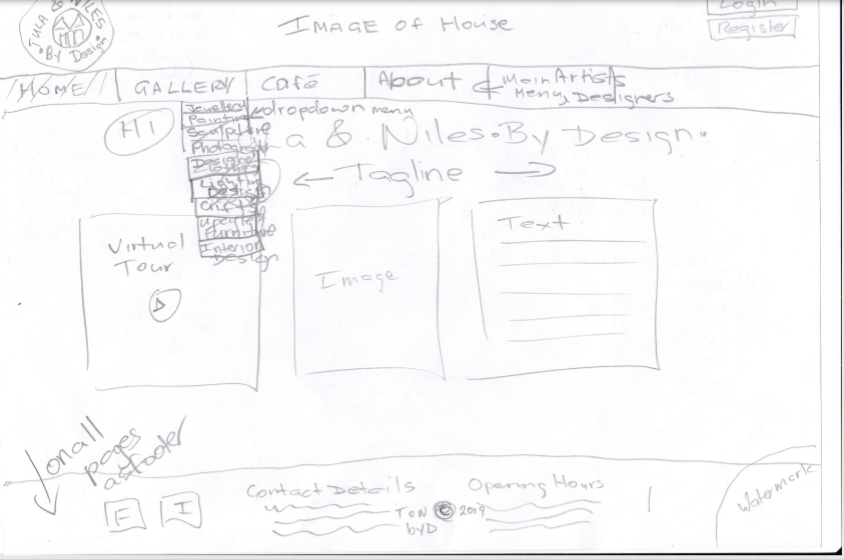 JULA & NILES
• By Design •
IMAGE OF HOUSE
Login
Register
HOME
GALLERY
Café
About &
Main Artists
Menu, Designers
Jewellery
Painting
Sculpture
Photography
Designer
Lighting
Design
Crafts
Upcycle
Furniture
Interior
Design
dropdown menu
H1
a & Niles. By Design.
← Tagline →
Virtual
Tour
Image
Text
on all
pages
as footer
F
I
Contact Details
Opening Hours
© 2019
byD
Watermark